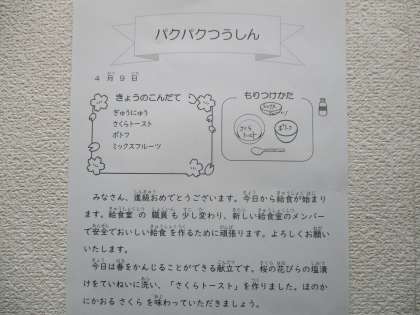 パクパクつうしん
4月9日
きょうのこんだて
ぎゅうにゅう
さくらトースト
ポトフ
ミックスフルーツ
もりつけかた
さくらトースト
ポトフ
みなさん、進級おめでとうございます。今日から給食が始まり
ます。給食室の職員も少し変わり、新しい給食室のメンバー
で安全でおいしい給食を作るために頑張ります。よろしくお願い
いたします。
今日は春をかんじることができる献立です。桜の花びらの塩漬
けをていねいに洗い、「さくらトースト」を作りました。ほのか
にかおるさくらを味わっていただきましょう。